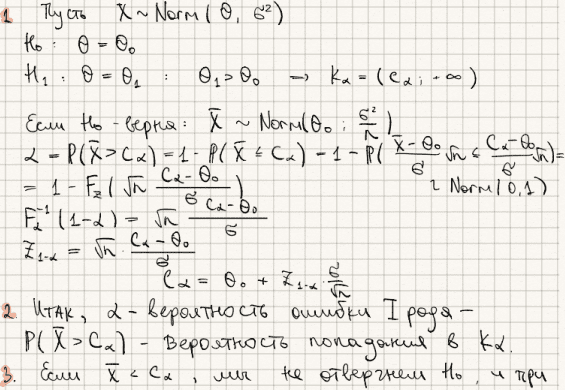 1. Пусть X ~ Norm(θ, σ²)
H₀ : θ = θ₀
H₁ : θ = θ₁ : θ₁ > θ₀ → Kα = (cα ; +∞)
Если H₀ - верна : X̄ ~ Norm(θ₀ ; σ²/n)
α = P(X̄ > Cα) = 1 - P(X̄ ≤ Cα) = 1 - P((X̄ - θ₀)/σ √n ≤ (Cα - θ₀)/σ √n) =
= 1 - F_z(√n (Cα - θ₀)/σ) ~ Norm(0,1)
Fα⁻¹(1-α) = √n (Cα - θ₀)/σ
Z₁₋α = √n · (Cα - θ₀)/σ
Cα = θ₀ + Z₁₋α · σ/√n
2. Итак, α - вероятность ошибки I рода -
P(X̄ > Cα) - Вероятность попадания в Kα.
3. Если X̄ < Cα , мы не отвергнем H₀ , и при